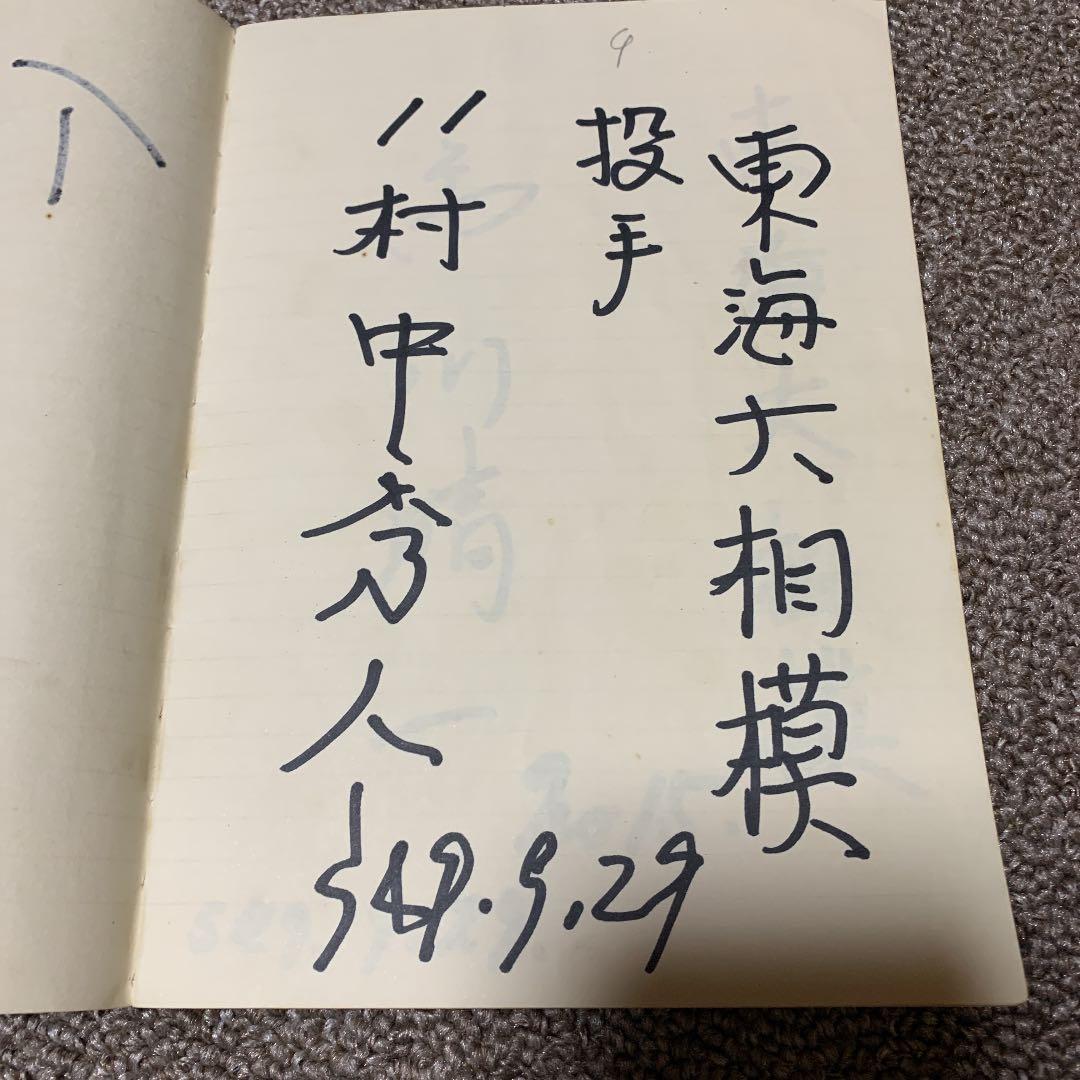 東海大相模
投手
〃村中秀人
S49.9.29
9